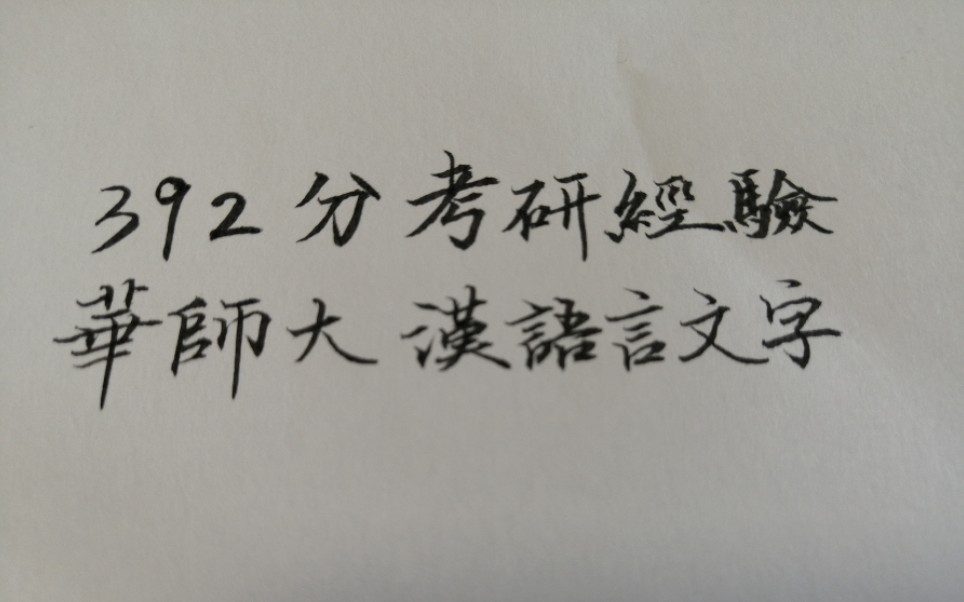 392分考研經驗
華師大 漢語言文字